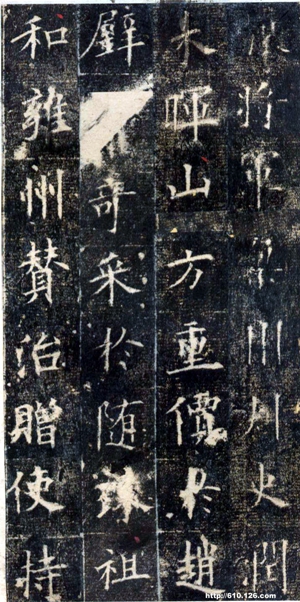 將軍梁州刺史潤
木暉山方重價於趙
璧奇采於随珠祖
和雍州贊治贈使持
http://610.126.com